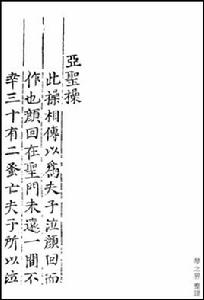 亞聖操
此操相傳以爲夫子泣顏回而
作也顏回在聖門未達一間不
幸三十有二蚤亡夫子所以泣
琴之界 整理